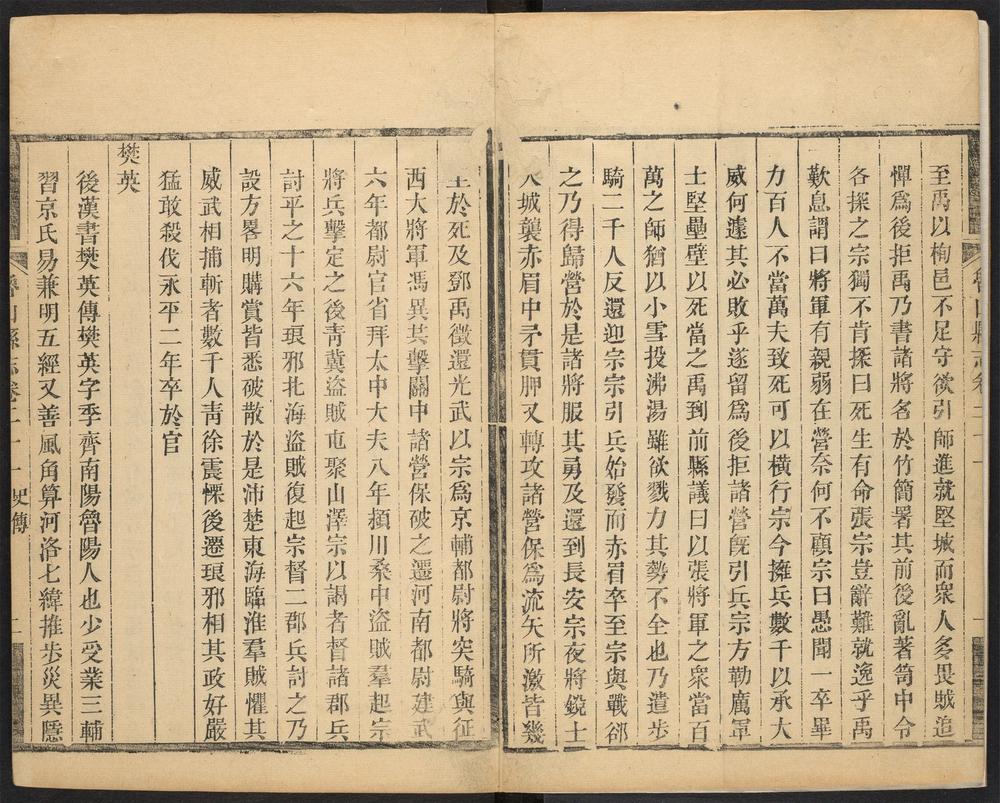 至禹以栒邑不足守欲引師進就堅城而衆人多畏賊追
憚爲後拒禹乃書諸將名於竹簡署其前後亂著笥中令
各探之宗獨不肯探曰死生有命張宗豈辭難就逸乎禹
歎息謂曰將軍有親弱在營奈何不顧宗曰愚聞一卒畢
力百人不當萬夫致死可以橫行宗今擁兵數千以承大
威何遽其必敗乎遂留爲後拒諸營旣引兵宗方勒厲軍
士堅壘壁以死當之禹到前縣議曰以張將軍之衆當百
萬之師猶以小雪投沸湯雖欲戮力其勢不全也乃遣步
騎二千人反還迎宗宗引兵始發而赤眉卒至宗與戰郤
之乃得歸營於是諸將服其勇及還到長安宗夜將銳士
入城襲赤眉中矛貫胛又轉攻諸營保爲流矢所激皆幾
至於死及鄧禹徵還光武以宗爲京輔都尉將突騎與征
西大將軍馮異共擊關中諸營保破之遷河南都尉建武
六年都尉官省拜太中大夫八年潁川桑中盜賊羣起宗
將兵擊定之後靑冀盜賊屯聚山澤宗以謁者督諸郡兵
討平之十六年琅邪北海盜賊復起宗督二郡兵討之乃
設方畧明購賞皆悉破散於是沛楚東海臨淮羣賊懼其
威武相捕斬者數千人靑徐震慄後遷琅邪相其政好嚴
猛敢殺伐永平二年卒於官
樊英
後漢書樊英傳樊英字季齊南陽魯陽人也少受業三輔
習京氏易兼明五經又善風角算河洛七緯推步災異隱
魯山縣志卷二十一 史傳 二